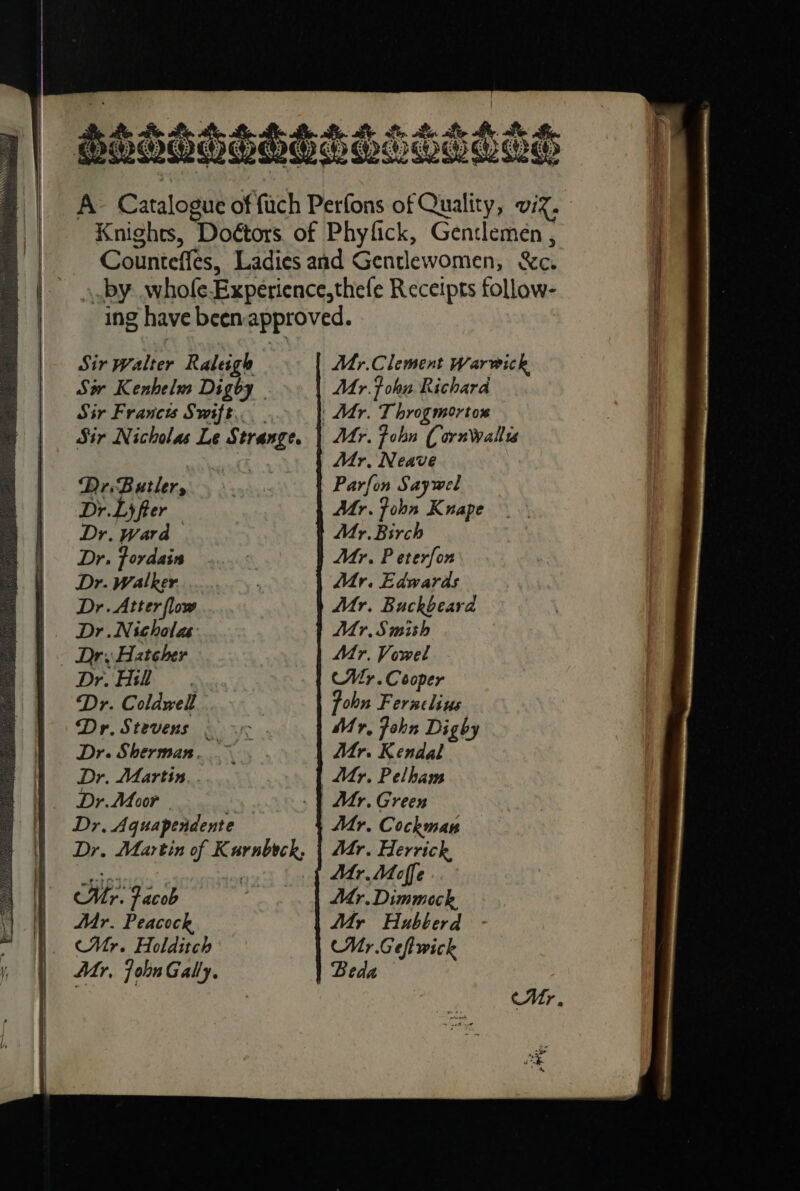 A Catalogue of ſuch Perſons of Quality, viz.
Knights, Doctors of Phyſick, Gentlemen,
Counteſſes, Ladies and Gentlewomen, &c.
by whoſe Experience, theſe Receipts follow-
ing have been approved.
Sir Walter Raleigh
Sir Kenhelm Digby
Sir Francis Swift.
Sir Nicholas Le Strange.
Dr. Butler,
Dr. Lyſter
Dr. Ward
Dr. Jordain
Dr. Walker
Dr. Atterflow
Dr. Nicholas
Dr. Hatcher
Dr. Hill
Dr. Coldwell
Dr. Stevens
Dr. Sherman.
Dr. Martin
Dr. Moor
Dr. Aquapendente
Dr. Martin of Kurnbeck,
Mr. Jacob
Mr. Peacock
Mr. Holditch
Mr. John Gally.
Mr. Clement Warwick
Mr. John Richard
Mr. Throgmorton
Mr. John Cornwallis
Mr. Neave
Parſon Saywel
Mr. John Knape
Mr. Birch
Mr. Peterſon
Mr. Edwards
Mr. Buckbeard
Mr. Smith
Mr. Vowel
Mr. Cooper
John Fernelius
Mr. John Digby
Mr. Kendal
Mr. Pelham
Mr. Green
Mr. Cockman
Mr. Herrick
Mr. Moſſe
Mr. Dimmock
Mr Hubberd
Mr. Geſtwick
Beda
Mr.